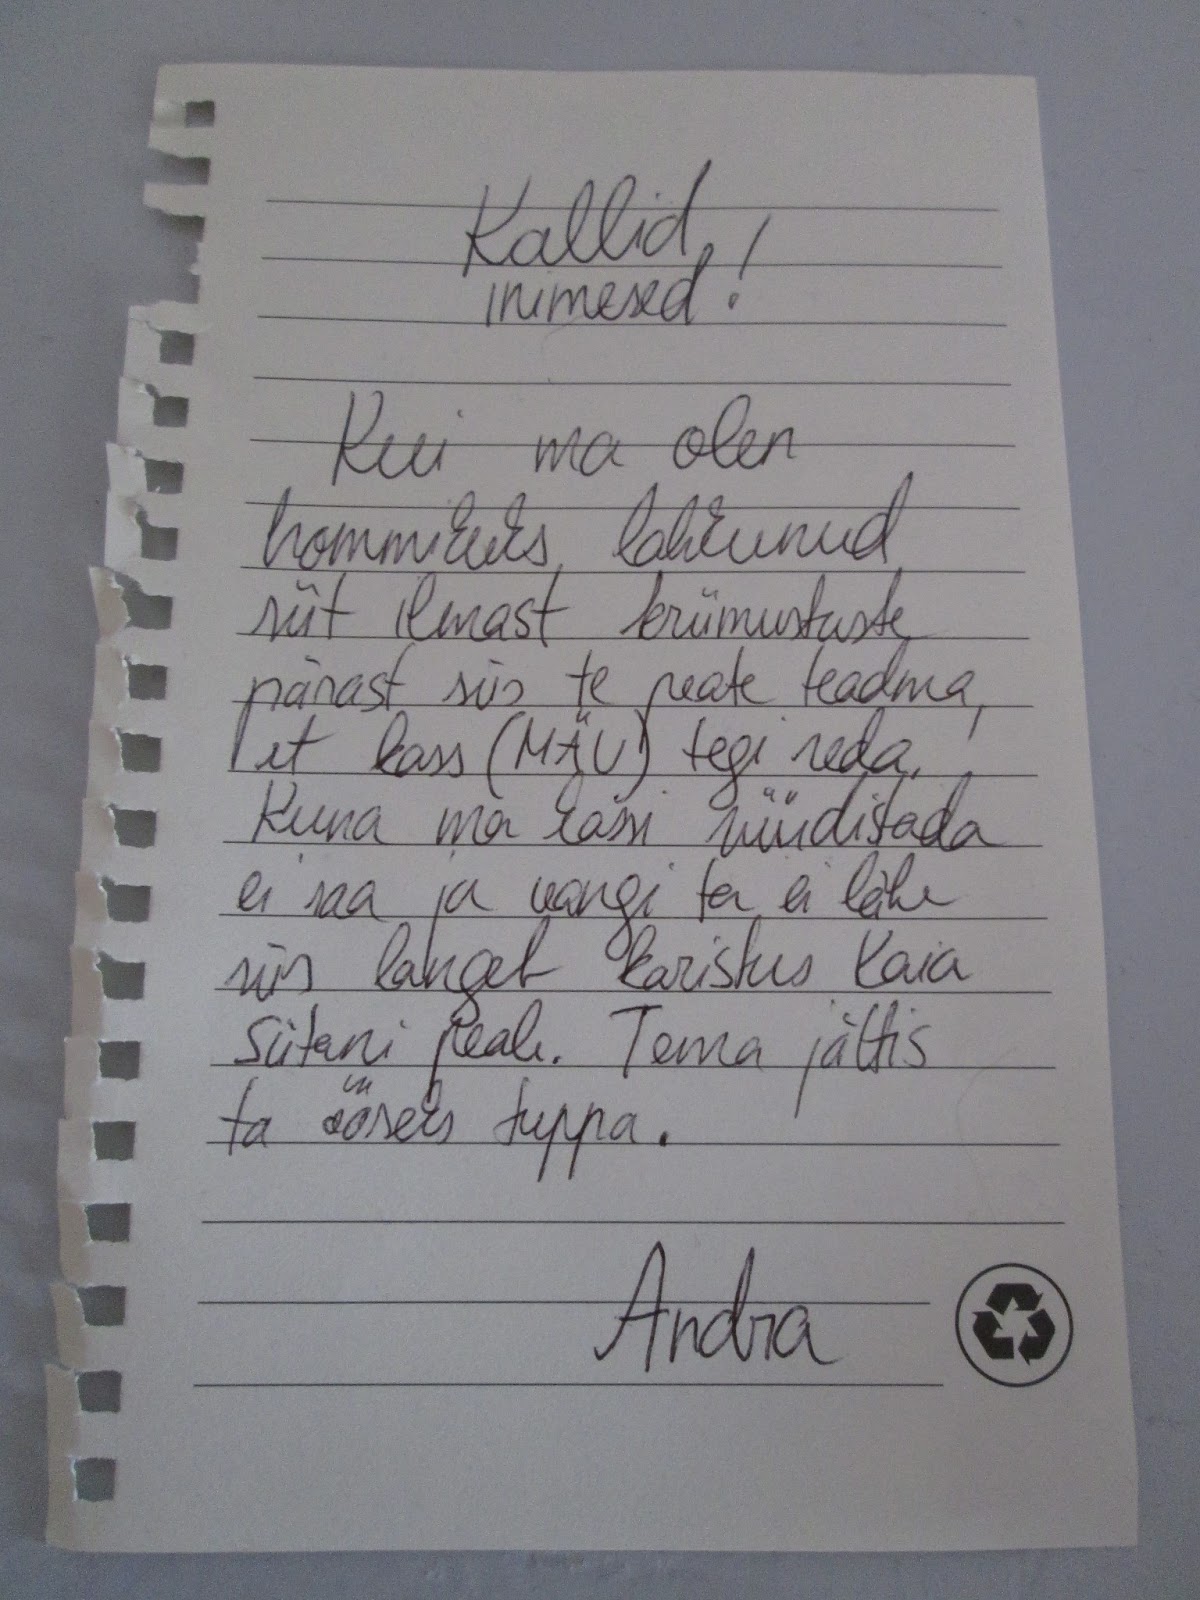 Kallid
inimesed!
Kui ma olen
hommikuks lahkunud
siit ilmast kriimustuste
pärast siis te peate teadma,
et kass (MÄU) tegi seda.
Kuna ma kassi süüdistada
ei saa ja vangi ta ei lähe
siis langeb karistus Kaia
Siitani peale. Tema jättis
ta ööseks tuppa.
Andra